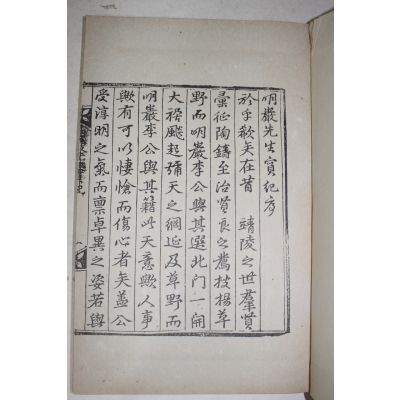 明巖先生實紀序
於乎欷矣在昔　靖陵之世羣賢
彙征陶鑄至治賢良之薦枝揚草
野而明巖李公與其選北門一開
大禍飇起彌天之綱延及草野而
明巖李公與其籍此天意歟人事
歟有可以悽愴而傷心者矣盖公
受淳明之氣而禀卓異之姿若與